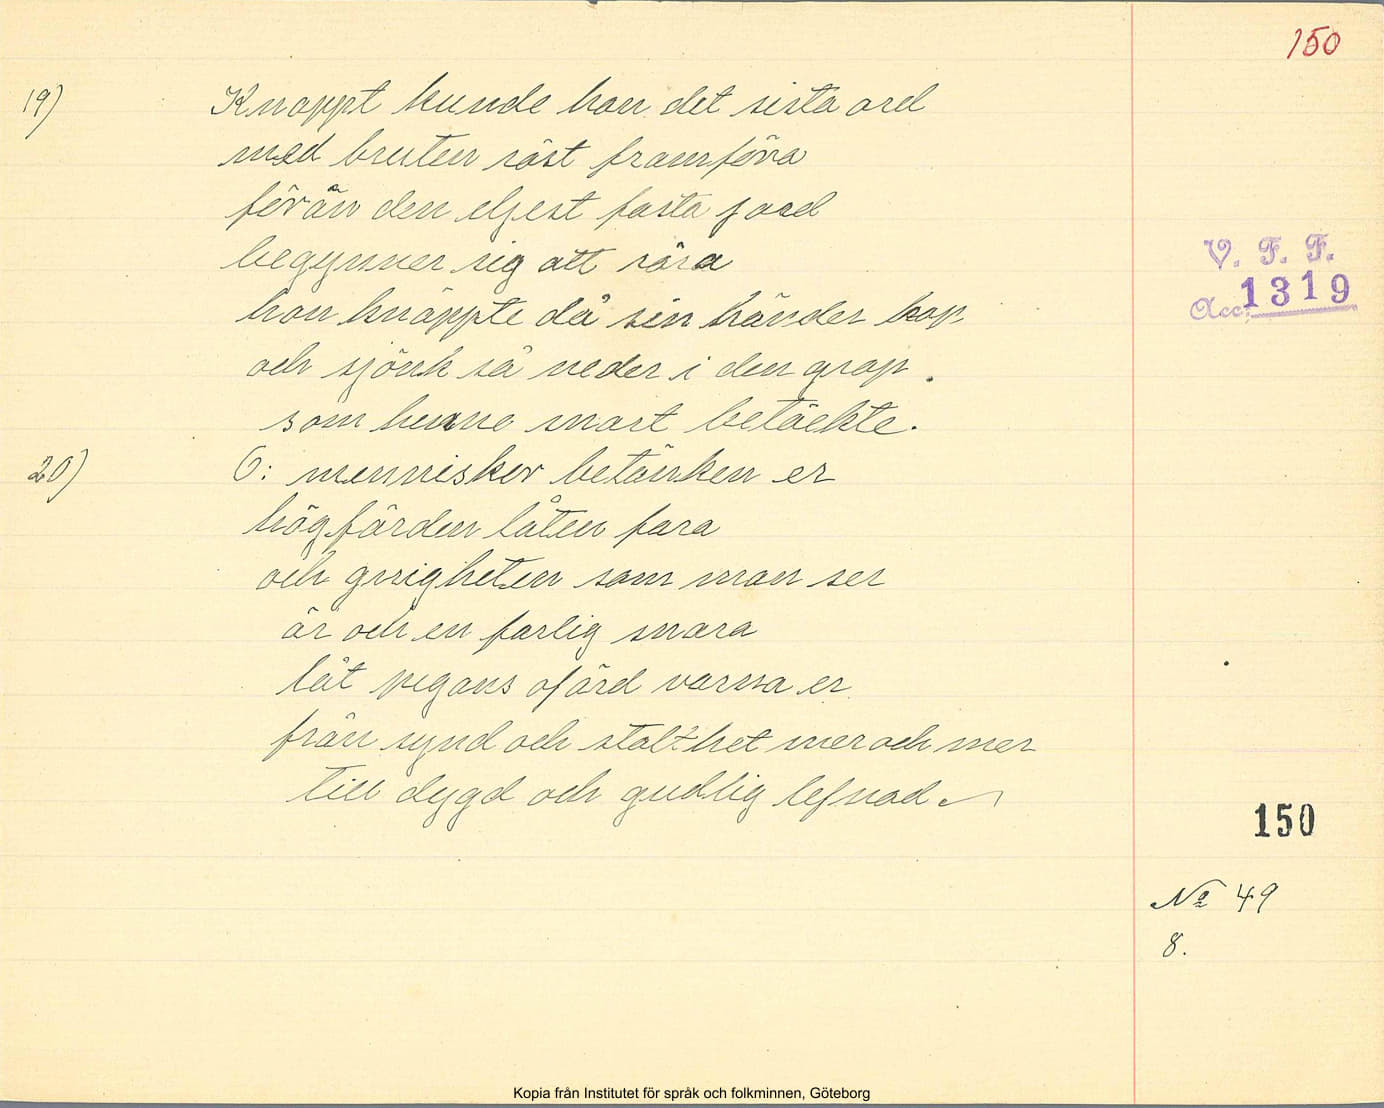 150
19) Knappt kunde hon det sista ord
med bruten röst framföra
förän den eljest fasta jord
begynner sig att röra
hon knäppte då sin händer hop
och sjönk så neder i den grop.
som henne snart betäckte.
20) O: mennisker betänken er
högfärden låten fara
och girigheten som man ser
är och en farlig snara
låt pigans ofärd varna er
från synd och stolthet mer och mer
till dygd och gudlig lefnad
V. F. F.
Acc: 1319
150
No 49
8.
Kopia från Institutet för språk och folkminnen, Göteborg